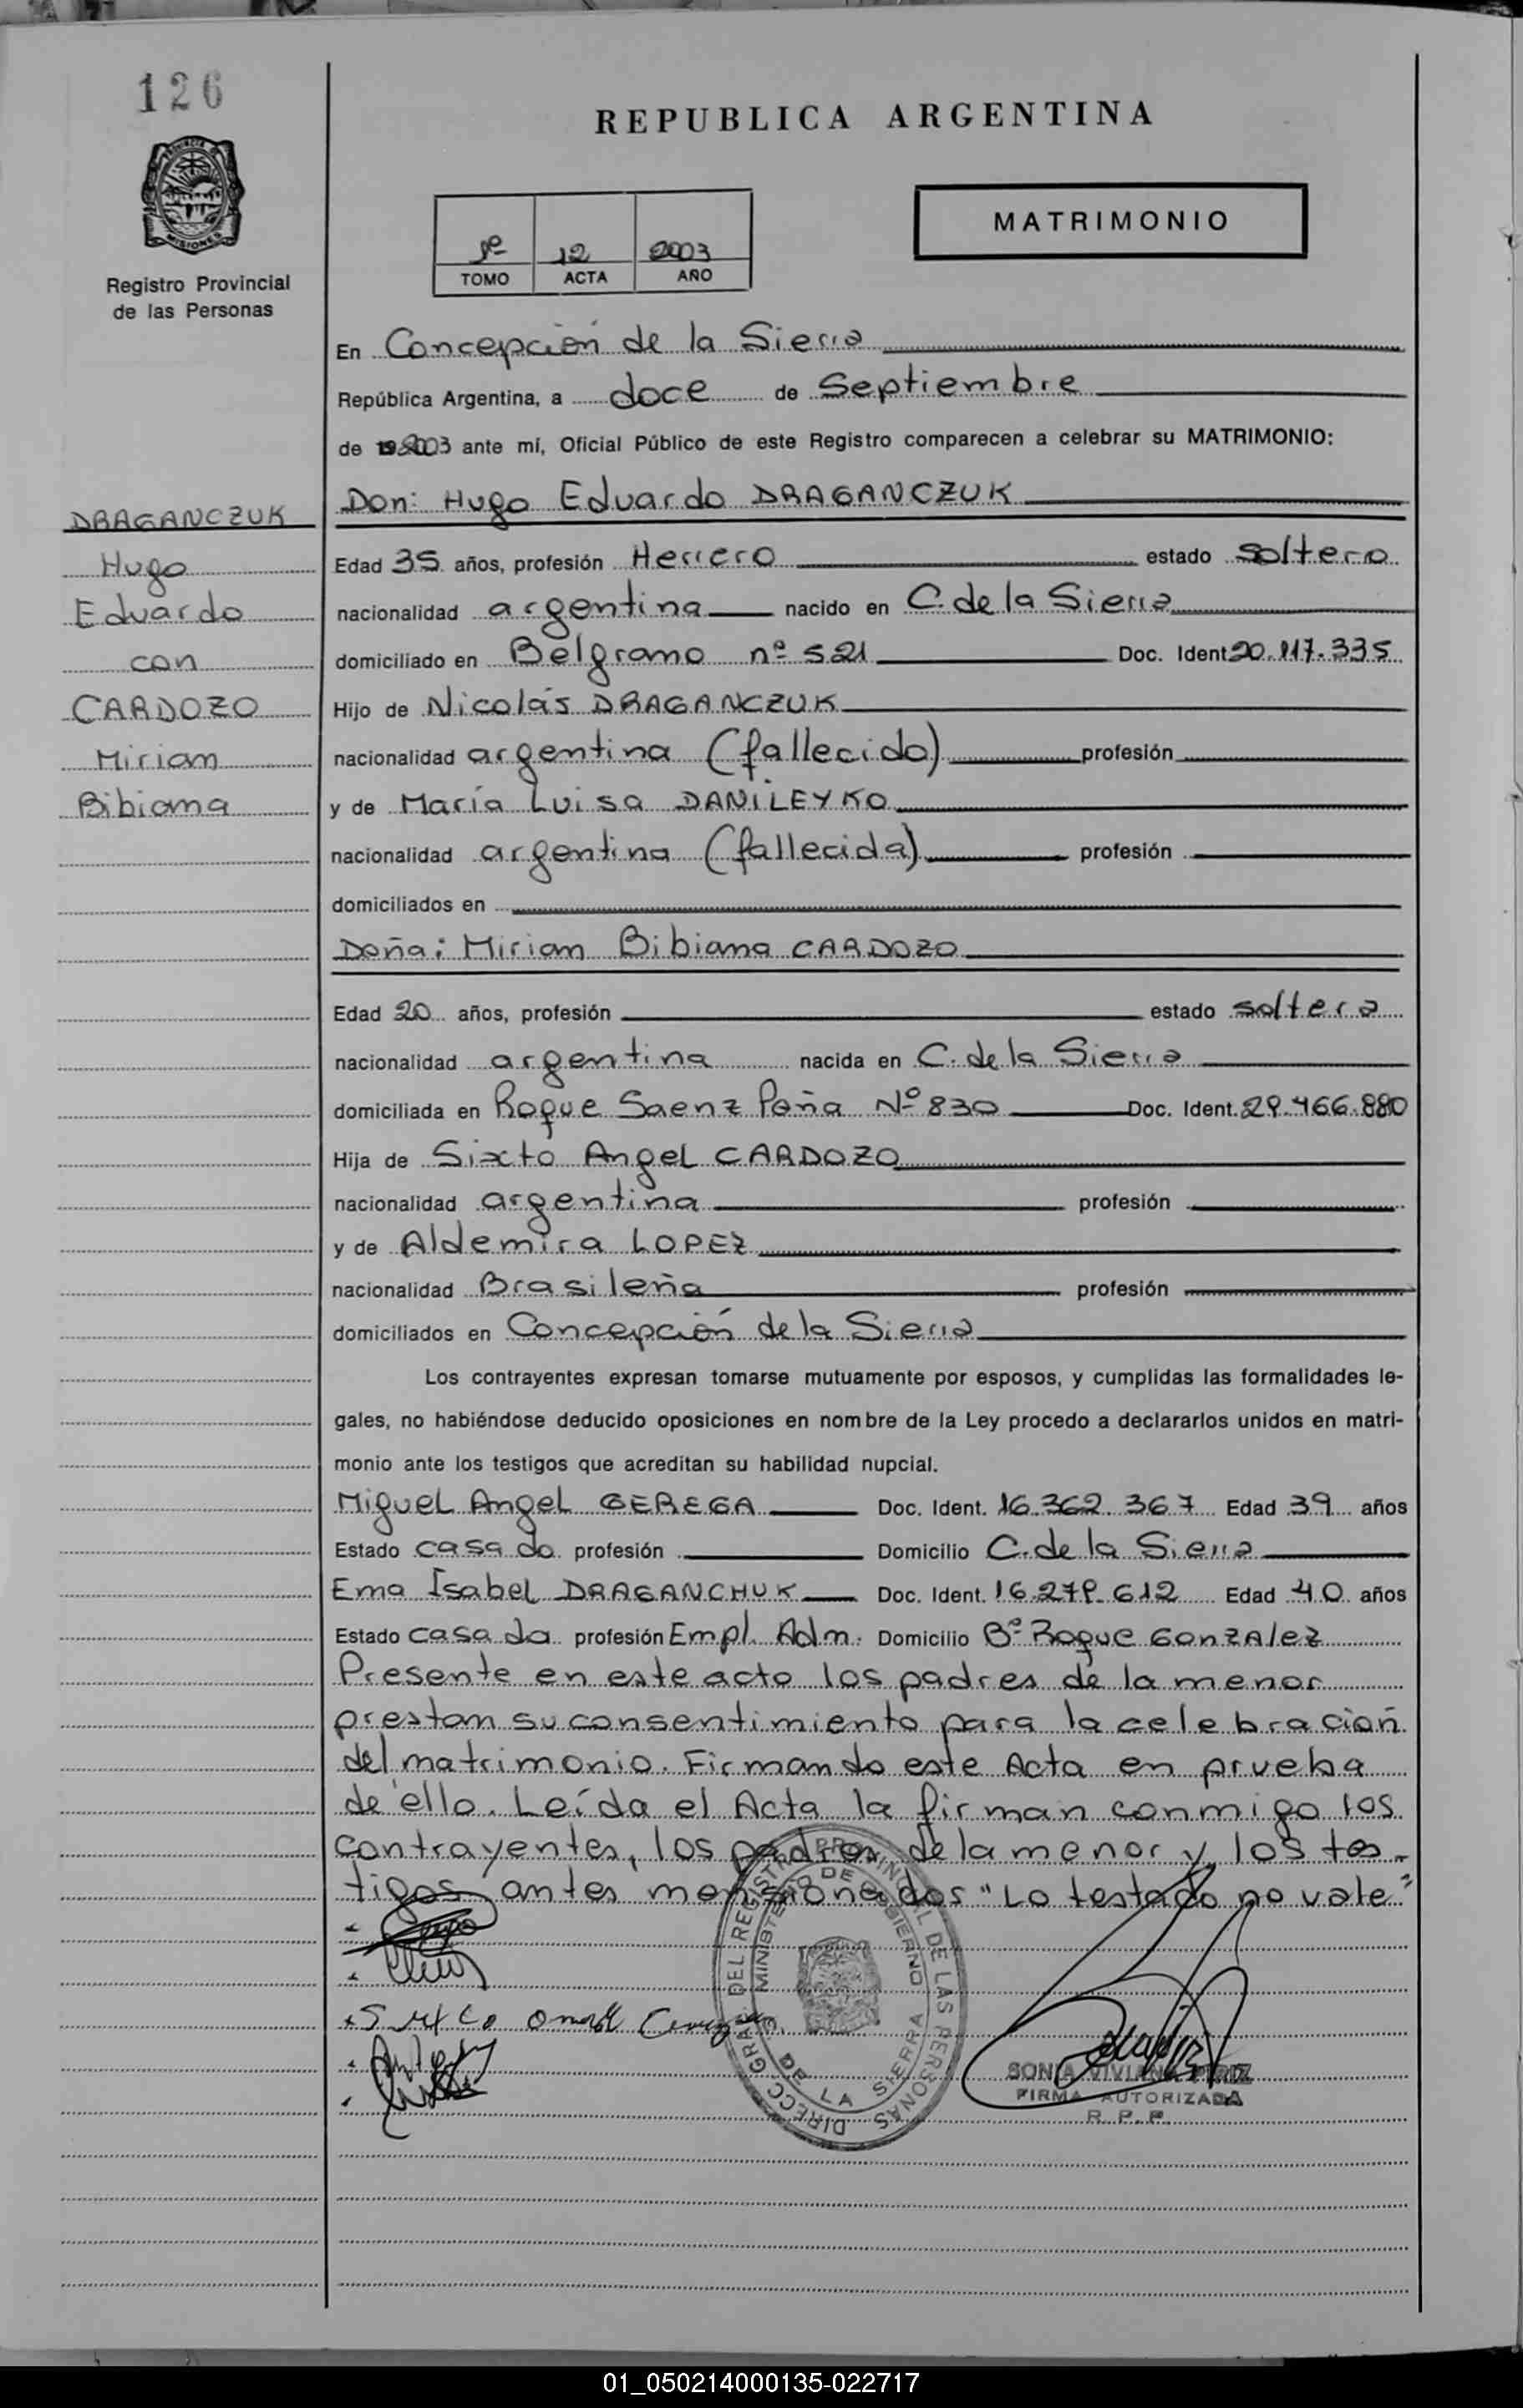 126
REPUBLICA ARGENTINA
MATRIMONIO
1º 12 2003
TOMO ACTA AÑO
PROVINCIA DE
MISIONES
Registro Provincial
de las Personas
En Concepción de la Sierra
República Argentina, a doce de Septiembre
de 2003 ante mí, Oficial Público de este Registro comparecen a celebrar su MATRIMONIO:
DRAGANCZUK
Hugo
Eduardo
con
CARDOZO
Miriam
Bibiana
Don: Hugo Eduardo DRAGANCZUK
Edad 35 años, profesión Herrero estado soltero
nacionalidad argentina nacido en C. de la Sierra
domiciliado en Belgrano nº 521 Doc. Ident 20.117.335
Hijo de Nicolás DRAGANCZUK
nacionalidad argentina (fallecido) profesión
y de María Luisa DANILEYKO
nacionalidad argentina (fallecida) profesión
domiciliados en
Doña: Miriam Bibiana CARDOZO
Edad 20 años, profesión estado soltera
nacionalidad argentina nacida en C. de la Sierra
domiciliada en Roque Saenz Peña Nº 830 Doc. Ident. 29.466.880
Hija de Sixto Angel CARDOZO
nacionalidad argentina profesión
y de Aldemira LOPEZ
nacionalidad Brasileña profesión
domiciliados en Concepción de la Sierra
Los contrayentes expresan tomarse mutuamente por esposos, y cumplidas las formalidades le-
gales, no habiéndose deducido oposiciones en nombre de la Ley procedo a declararlos unidos en matri-
monio ante los testigos que acreditan su habilidad nupcial.
Miguel Angel GEREGA Doc. Ident. 16.362.367 Edad 39 años
Estado casado profesión Domicilio C. de la Sierra
Ema Isabel DRAGANCHUK Doc. Ident. 16.279.612 Edad 40 años
Estado casada profesión Empl. Adm. Domicilio Bº Roque Gonzalez
Presente en este acto los padres de la menor
prestan su consentimiento para la celebración
del matrimonio. Firmando este Acta en prueba
de ello. Leída el Acta la firman conmigo los
contrayentes, los padres de la menor y los tes-
tigos antes mensionados "Lo testado no vale"
DIRECC. GRAL. DEL REGISTRO PROVINCIAL DE LAS PERSONAS
MINISTERIO DE GOBIERNO
DE LA SIERRA
SONIA VIVIANA
FIRMA AUTORIZADA
R. P. P.
01_050214000135-022717